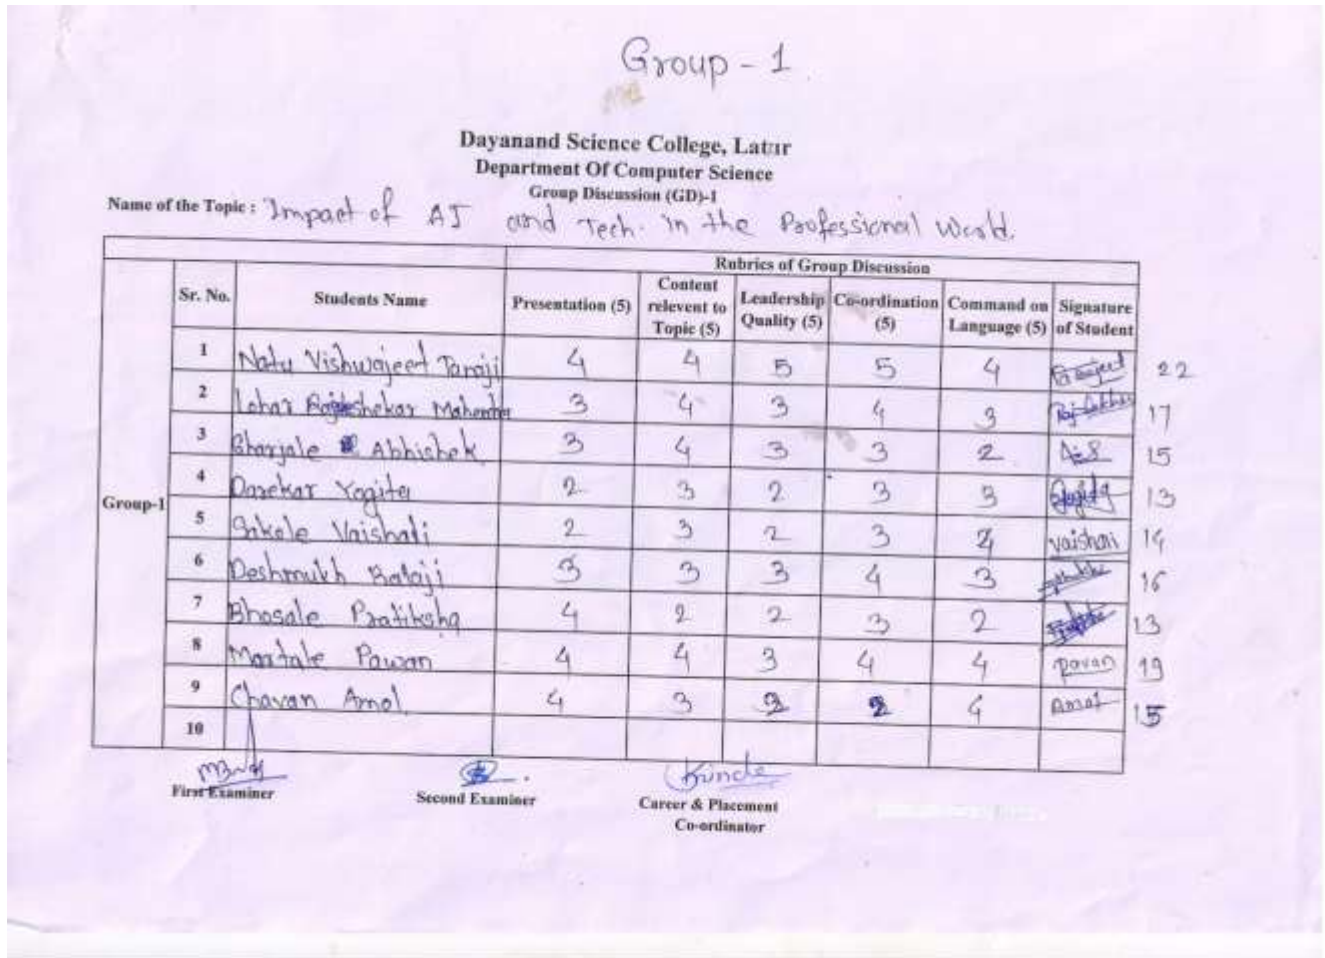 Group - 1
Dayanand Science College, Latur
Department Of Computer Science
Group Discussion (GD)-1
Name of the Topic : Impact of AI and Tech. in the Professional World.
Rubrics of Group Discussion
Sr. No. Students Name Presentation (5) Content relevent to Topic (5) Leadership Quality (5) Co-ordination (5) Command on Language (5) Signature of Student
Group-1
1 Natu Vishwajeet Tanaji 4 4 5 5 4 22
2 Lohar Rajshekar Mahender 3 4 3 4 3 17
3 Bharjale Abhishek 3 4 3 3 2 15
4 Darekar Yogita 2 3 2 3 3 Yogita 13
5 Sakole Vaishali 2 3 2 3 4 vaishali 14
6 Deshmukh Balaji 3 3 3 4 3 16
7 Bhosale Pratiksha 4 2 2 3 2 13
8 Martale Pawan 4 4 3 4 4 pavan 19
9 Chavan Amol 4 3 2 2 4 Amol 15
10
First Examiner Second Examiner Career & Placement
Co-ordinator